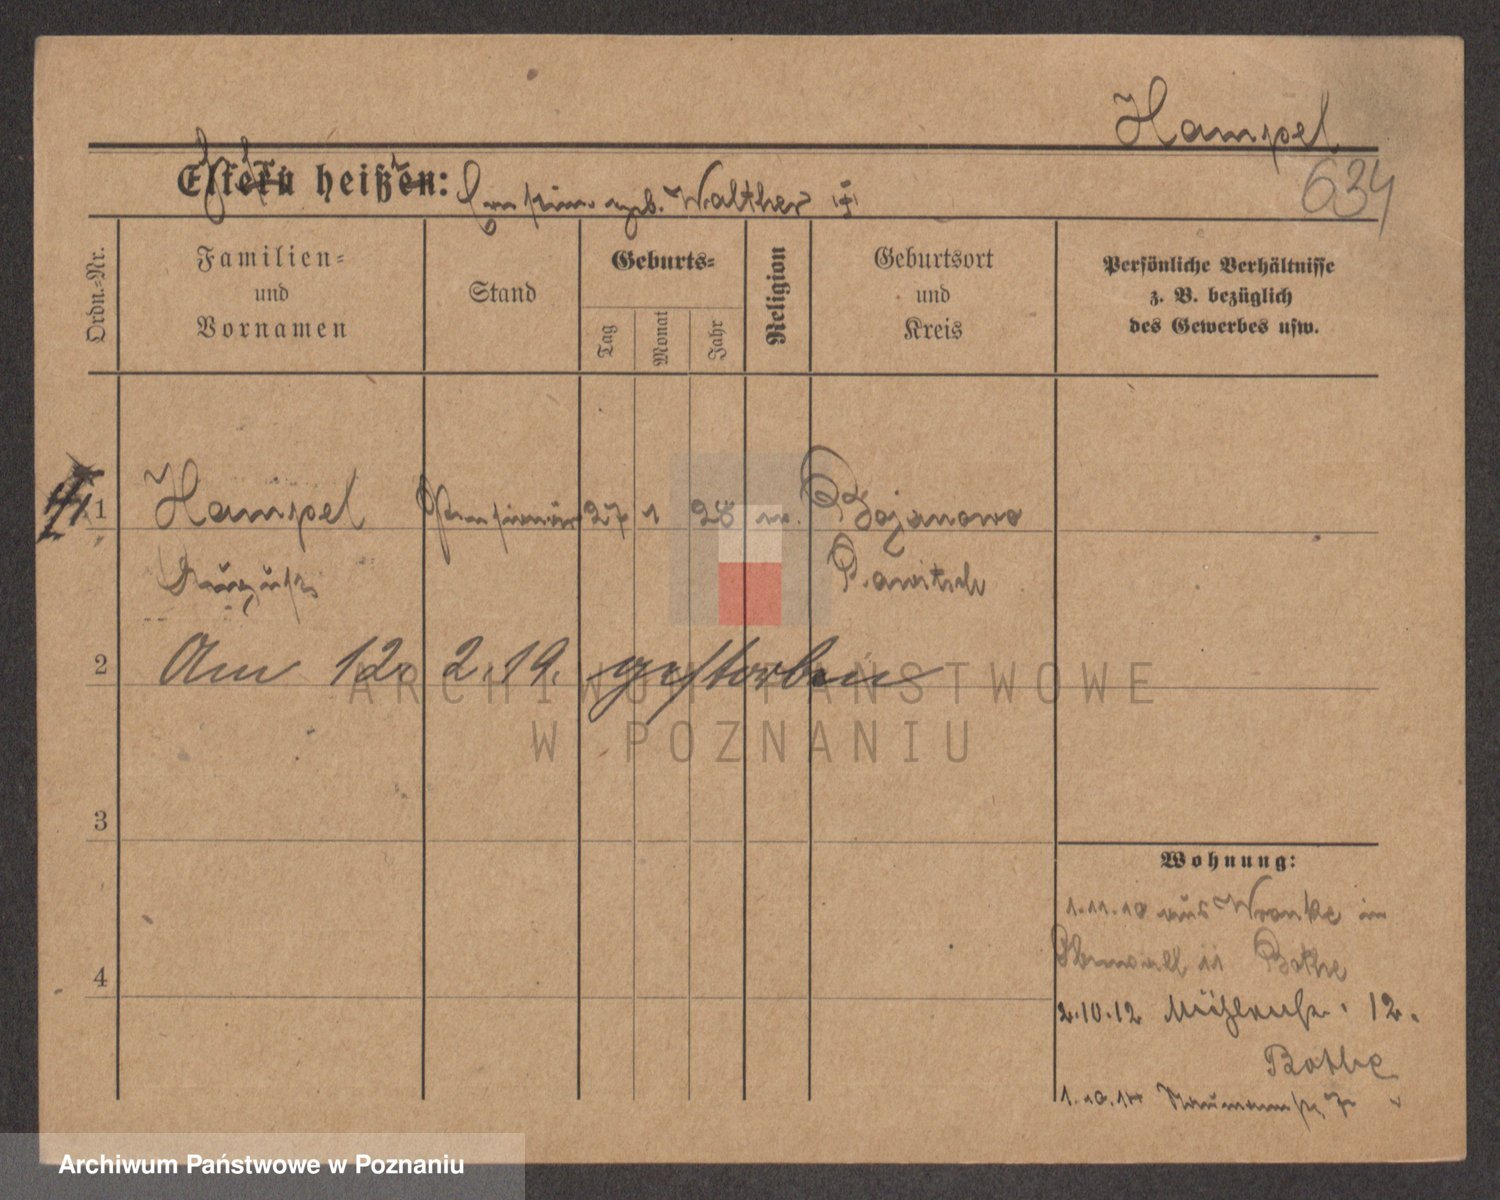 Hampel
634
Eltern heißen: geb. Walther
Ordn.-Nr.
Familien-
und
Vornamen
Stand
Geburts-
Tag
Monat
Jahr
Religion
Geburtsort
und
Kreis
Persönliche Verhältnisse
z. B. bezüglich
des Gewerbes usw.
1 Hampel 27 1 28 Bojanowo
August Rawitsch
2 Am 12. 2. 19. gestorben
3
4
Wohnung:
1.11.10 aus Wronke in
11 Bothe
2.10.12 Mühlenstr. 12.
Bothe
1.10.14 Naumannstr. 7
ARCHIWUM PAŃSTWOWE
W POZNANIU
Archiwum Państwowe w Poznaniu